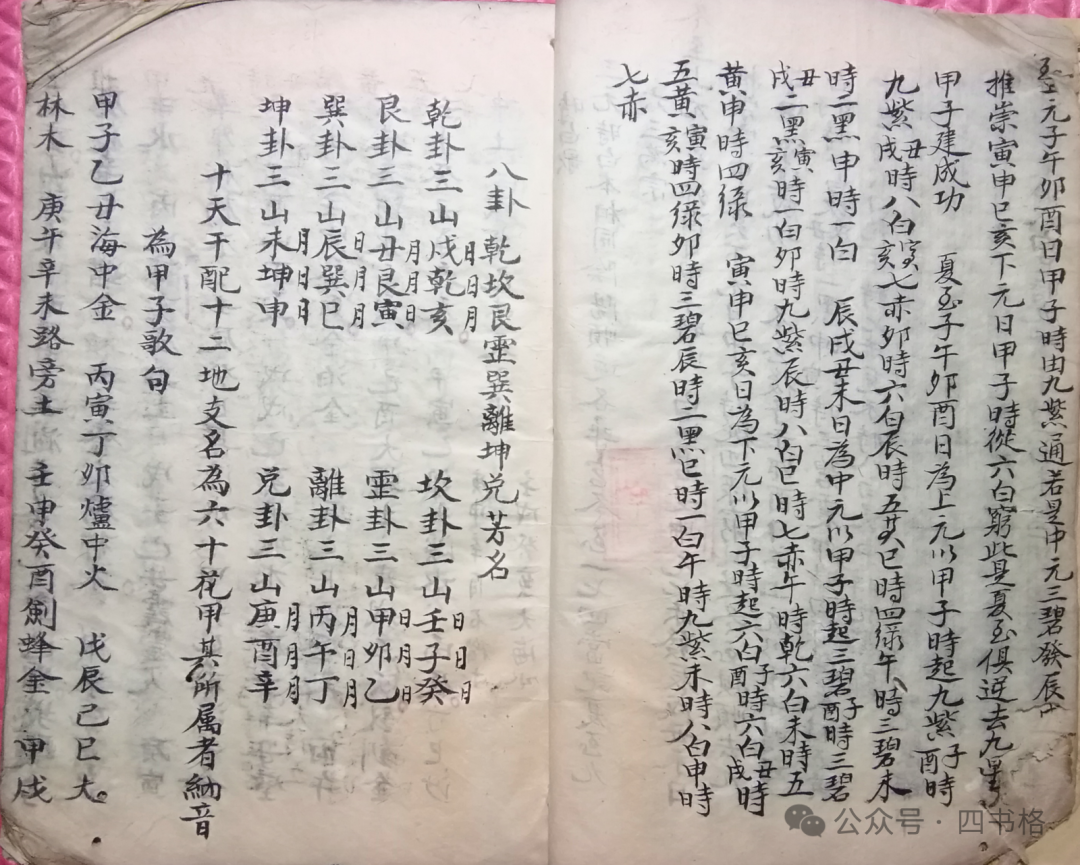 元子午卯酉日甲子時由九紫通若是中元三碧發辰
推崇寅申巳亥下元日甲子時從六白窮此是夏至俱逆去九星
甲子建成功 夏至子午卯酉日為上元以甲子時起九紫子酉時
九紫丑戌時八白寅亥七赤卯時六白辰時五黄巳時四綠午時三碧未
時二黑申時一白 辰戌丑未日為中元以甲子時起三碧子酉時三碧
丑戌二黑寅亥時一白卯時九紫辰時八白巳時七赤午時乾六白未時五
黄申時四綠 寅申巳亥日為下元以甲子時起六白子酉時六白丑戌時
五黄寅亥時四綠卯時三碧辰時二黑巳時一白午時九紫未時八白申時
七赤
八卦 乾坎艮靈巽離坤兑芳名
乾卦三山戌乾亥 月日月 坎卦三山壬子癸 日日日
艮卦三山丑艮寅 月月日 靈卦三山甲卯乙 日月日
巽卦三山辰巽巳 日月月 離卦三山丙午丁 月日月
坤卦三山未坤申 月日日 兑卦三山庚酉辛 月月月
十天干配十二地支名為六十花甲其所属者納音
為甲子歌句
甲子乙丑海中金 丙寅丁卯爐中火 戊辰己巳大
林木 庚午辛未路旁土 壬申癸酉劍蜂金 甲戌
公众号·四书格